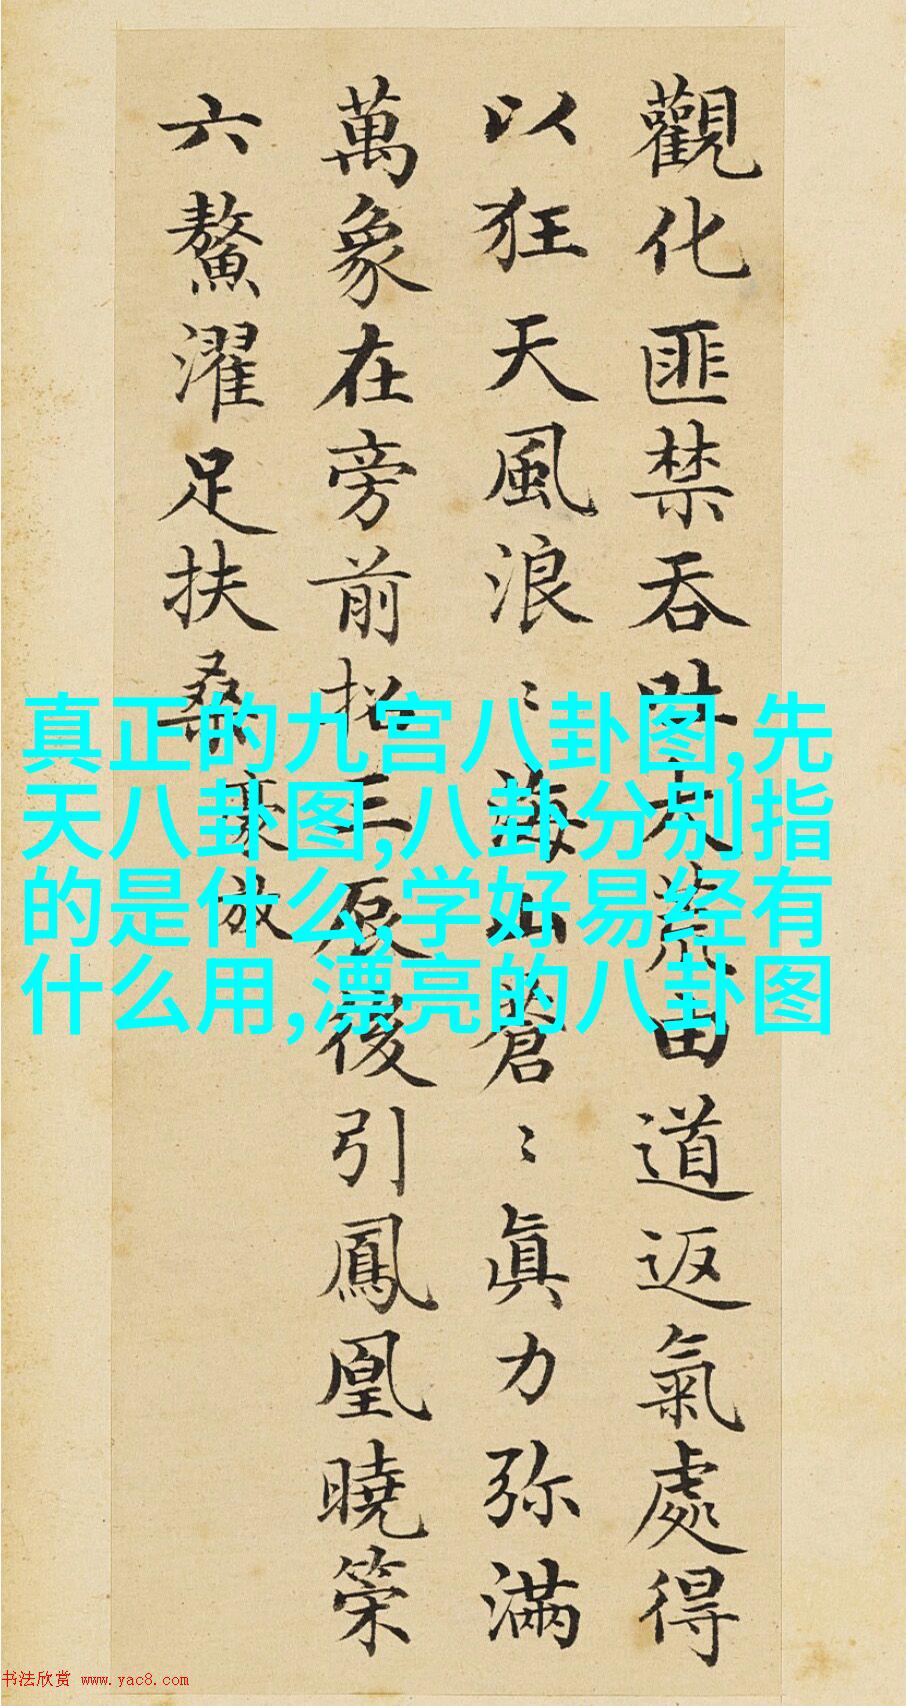 觀化匪禁吞吐大荒由道返氣處得
以狂天風浪〻海山蒼〻真力弥滿
萬象在旁前招三辰後引鳳凰曉策
六鰲濯足扶桑
豪放
真正的九宫八卦图,先
天八卦图,八卦分别指
的是什么,学好易经有
什么用,漂亮的八卦图
书法欣赏 www.yac8.com